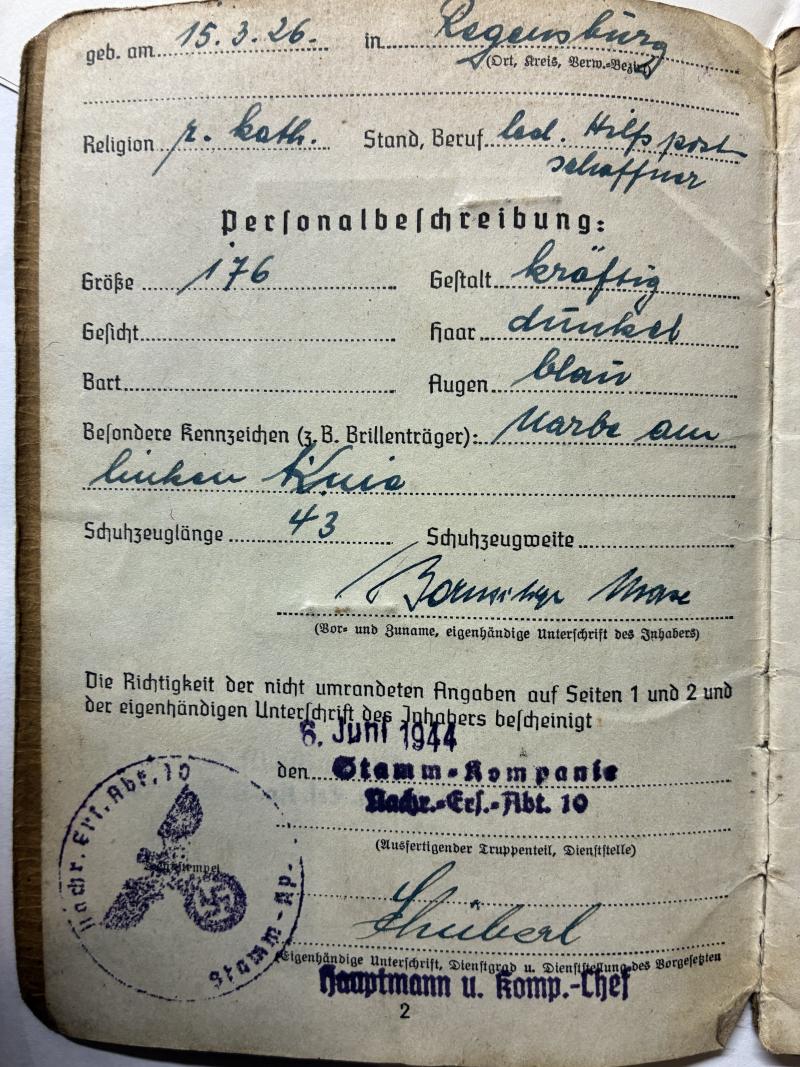 geb. am 15. 3. 26. in Regensburg
(Ort, Kreis, Verw.-Bezirk)
Religion r. kath. Stand, Beruf led. Hilfspost
schaffner
Personalbeschreibung:
Größe 176 Gestalt kräftig
Gesicht Haar dunkel
Bart Augen blau
Besondere Kennzeichen (z. B. Brillenträger): Narbe am
linken Knie
Schuhzeuglänge 43 Schuhzeugweite
(Vor- und Zuname, eigenhändige Unterschrift des Inhabers)
Die Richtigkeit der nicht umrandeten Angaben auf Seiten 1 und 2 und
der eigenhändigen Unterschrift des Inhabers bescheinigt
6. Juni 1944
den Stamm-Kompanie
Nachr.-Ers.-Abt. 10
(Ausfertigender Truppenteil, Dienststelle)
Nachr. Ers. Abt. 10
Stamm-Kp.
(Eigenhändige Unterschrift, Dienstgrad u. Dienststellung des Vorgesetzten
Hauptmann u. Komp.-Chef
2